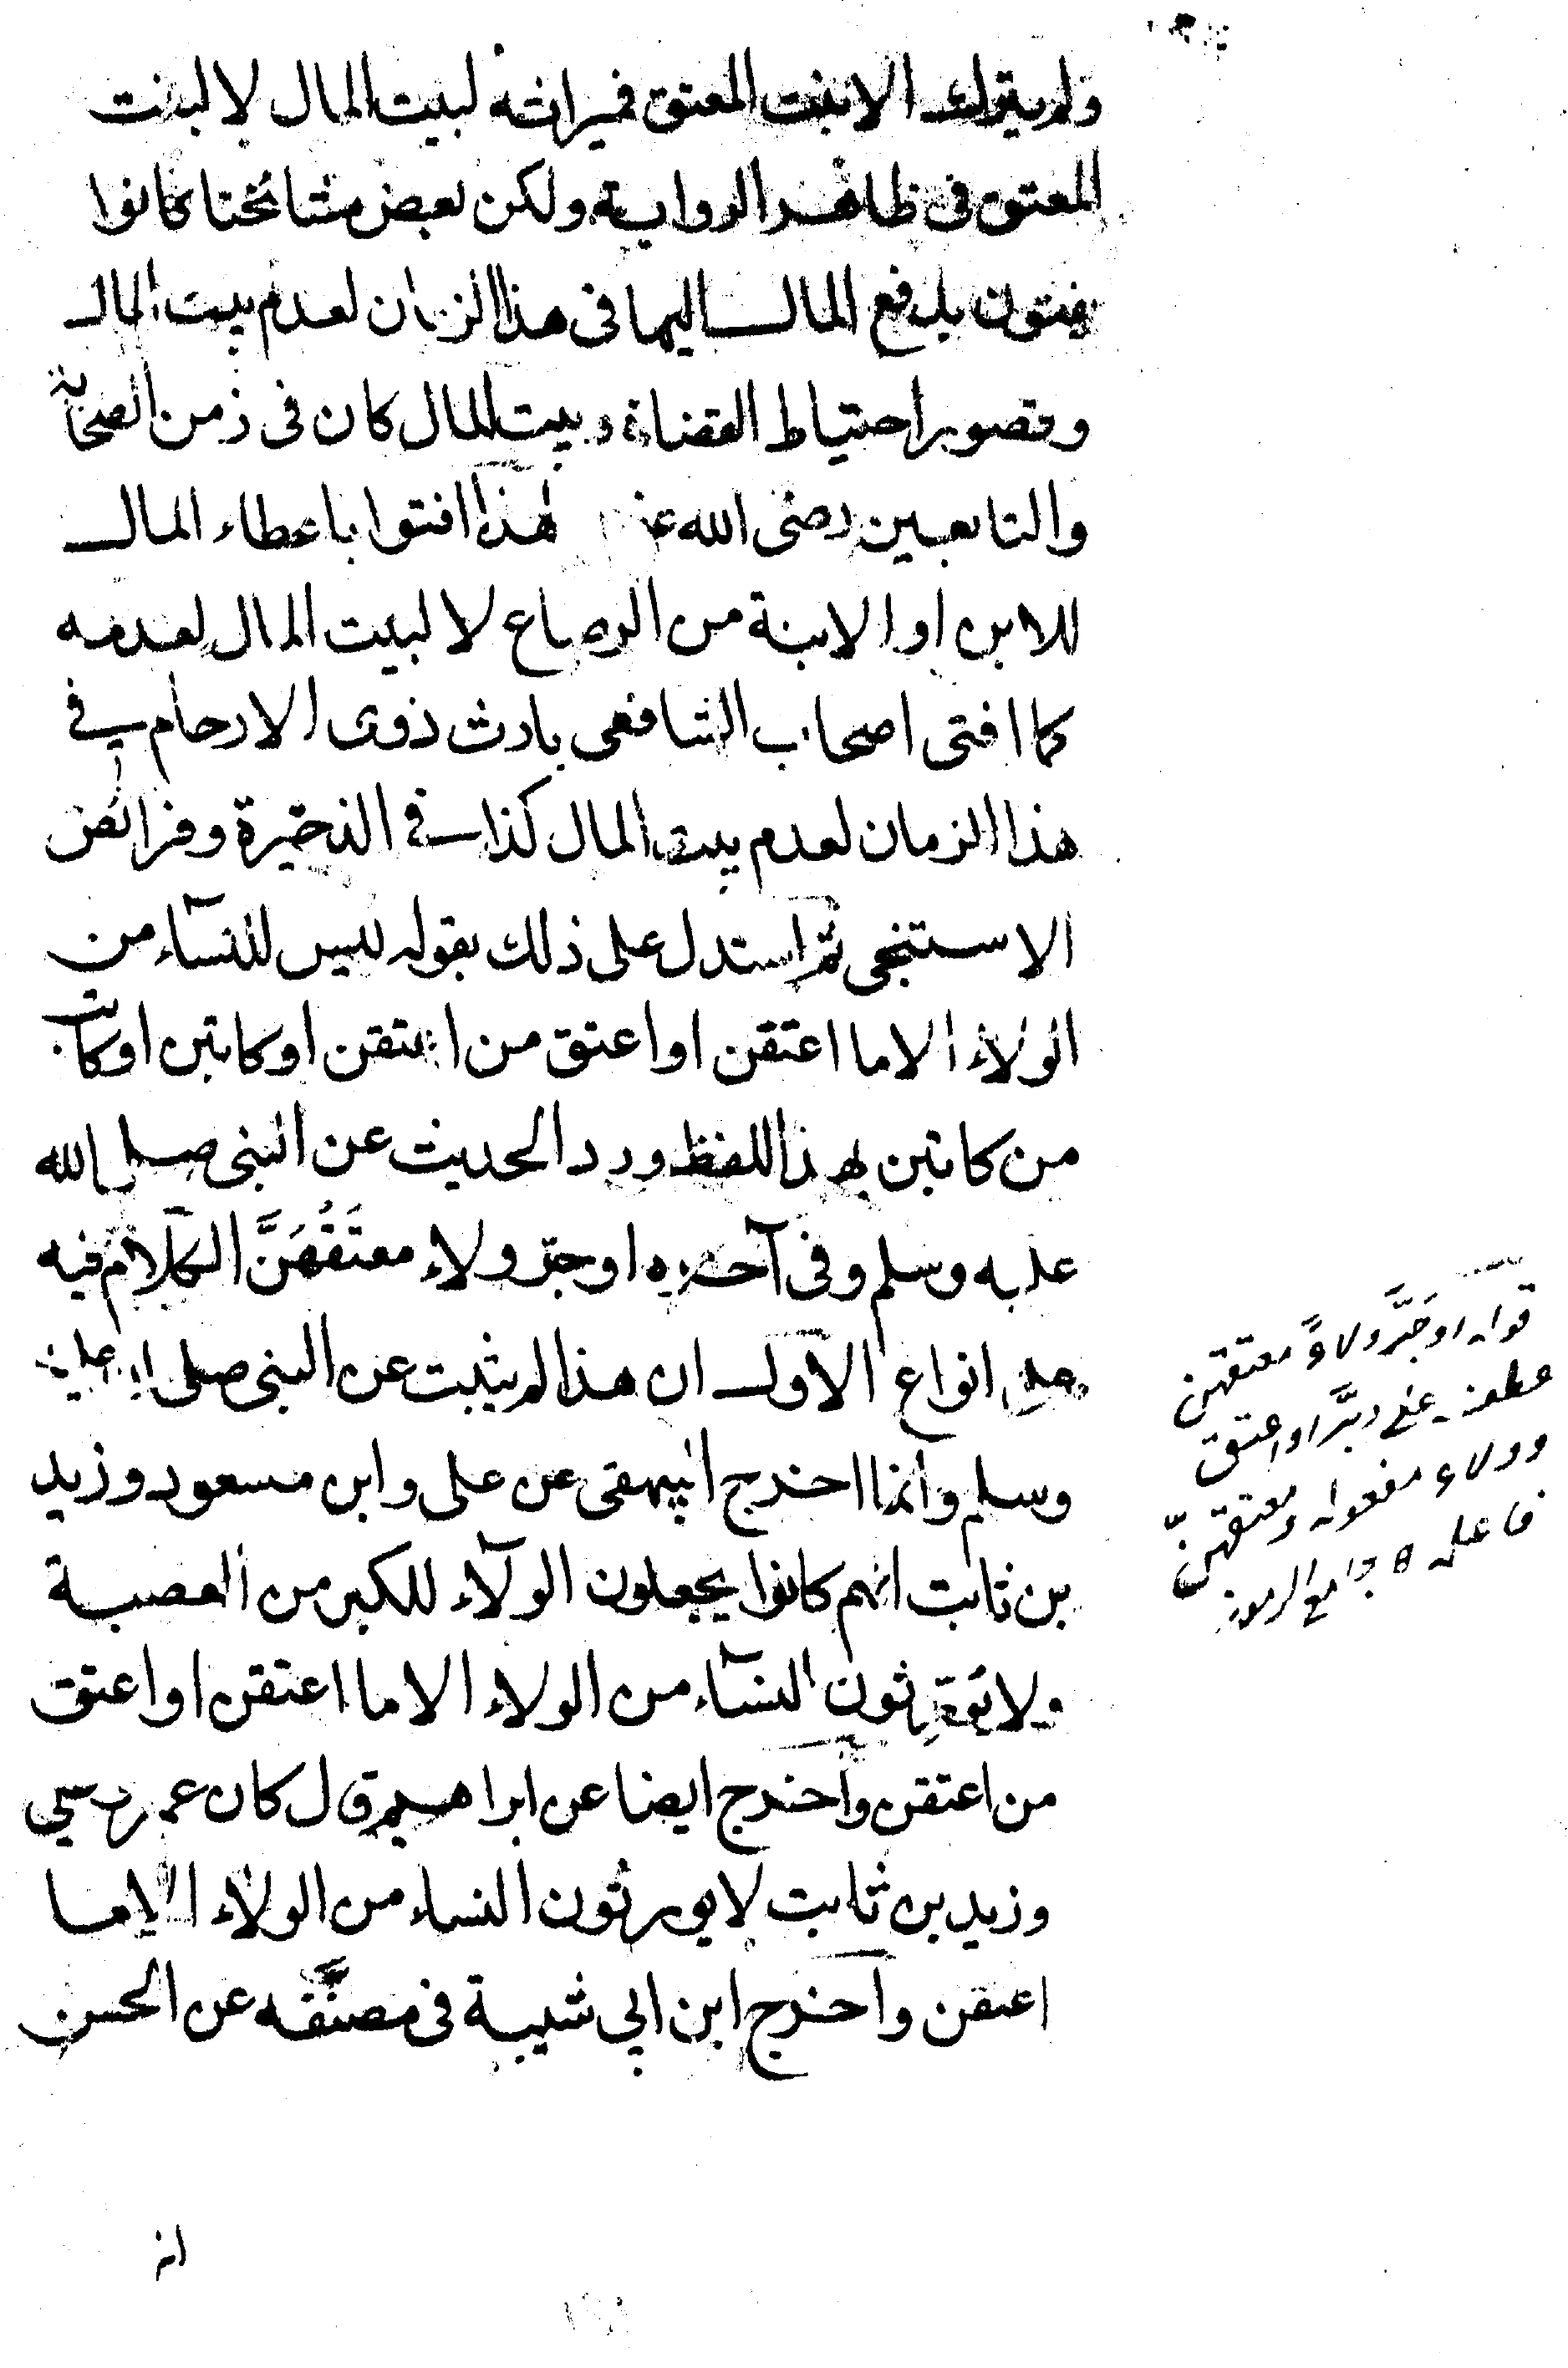 ولم يترك الا بنت المعتق فميراثه لبيت المال لا لبنت
المعتق فى ظاهر الرواية ولكن بعض مشائخنا كانوا
يفتون بدفع المال اليها فى هذا الزمان لعدم بيت المال
وقصور احتياط القضاة وبيت المال كان فى زمن الصحابة
والتابعين رضى الله عنـ لهذا افتوا باعطاء المال
للابن او الابنة من الرضاع لا لبيت المال لعدمه
كما افتى اصحاب الشافعى بارث ذوى الارحام في
هذا الزمان لعدم بيت المال كذا في الذخيرة وفرائض
الاستنجى ثم استدل على ذلك بقوله ليس للنسآء من
الولاء الا ما اعتقن او اعتق من اعتقن او كاتبن او كاتب
من كاتبن بهذا اللفظ ورد الحديث عن النبى صلى الله
عليه وسلم وفى آخره او جرّ ولاء معتَقُهَنَّ الكلام فيه
على انواع الاول ان هذا لم يثبت عن النبى صلى الله عليه
وسلم وانما اخرج البيهقى عن على وابن مسعود وزيد
بن ثابت انهم كانوا يجعلون الولآء للكبر من العصبة
ولا يورثون النسآء من الولاء الا ما اعتقن او اعتق
من اعتقن واخرج ايضا عن ابراهيم قال كان عمر وعلي
وزيد بن ثابت لا يورثون النساء من الولاء الا ما
اعتقن واخرج ابن ابي شيبة فى مصنَّفه عن الحسن
انه
قوله او جَرَّ ولاءً معتقهن
عطف على دبَّر او اعتق
وولاء مفعوله ومعتقهنّ
فاعله ه جامع الرموز